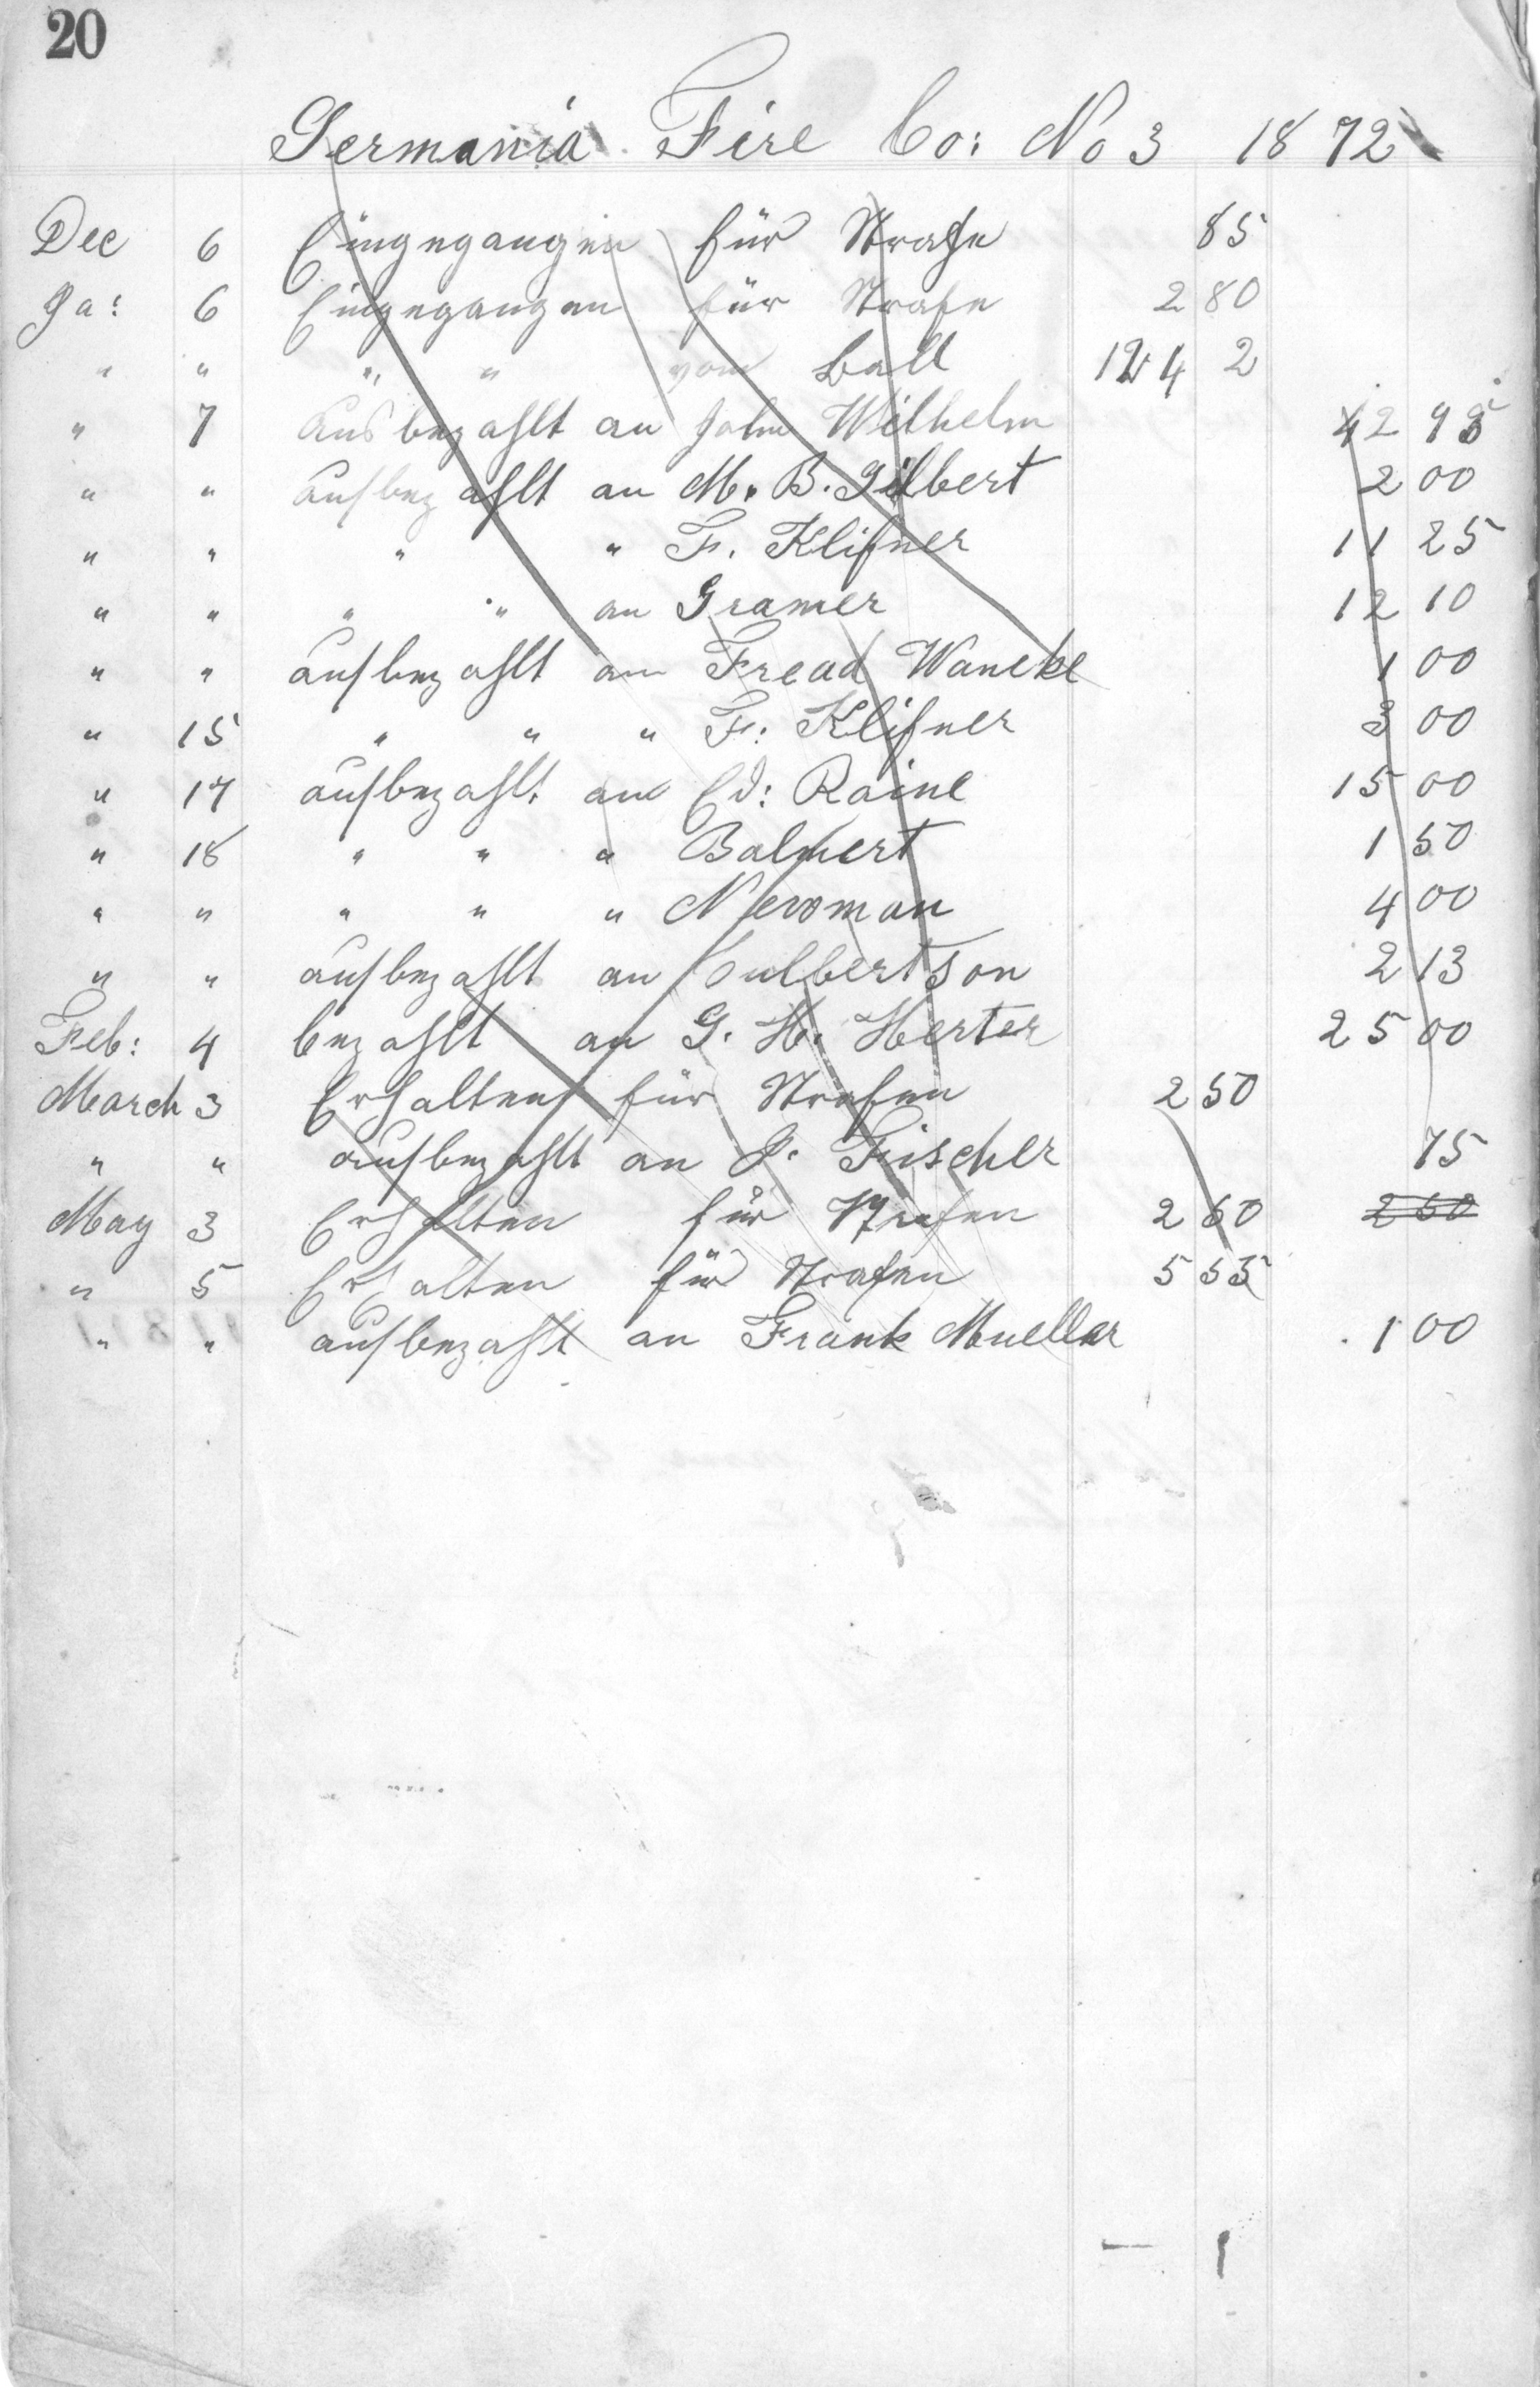 20
Germania Fire Co: No 3 1872
Dec 6 Eingegangen für Strafe 85
Ja: 6 Eingegangen für Strafe 2 80
" " " " vom Ball 4 2
" 7 Ausbezahlt an John Wilhelm 42 95
" " ausbezahlt an M. B. Gilbert 2 00
" " " " F. Klifner 11 25
" " " " an Gramer 12 10
" " ausbezahlt an Fread Wancke 1 00
" 15 " " " F: Klifner 3 00
" 17 ausbezahlt an Ed: Raine 15 00
" 18 " " " Balmert 1 50
" " " " " Newman 4 00
" " ausbezahlt an Culbertson 2 13
Feb: 4 bezahlt an G. H. Herter 25 00
March 3 Erhalten für Strafen 2 50
" " ausbezahlt an J. Fischer 75
May 3 Erhalten für Strafen 2 50 2 50
" 5 Erhalten für Strafen 5 55
" " ausbezahlt an Frank Mueller 1 00